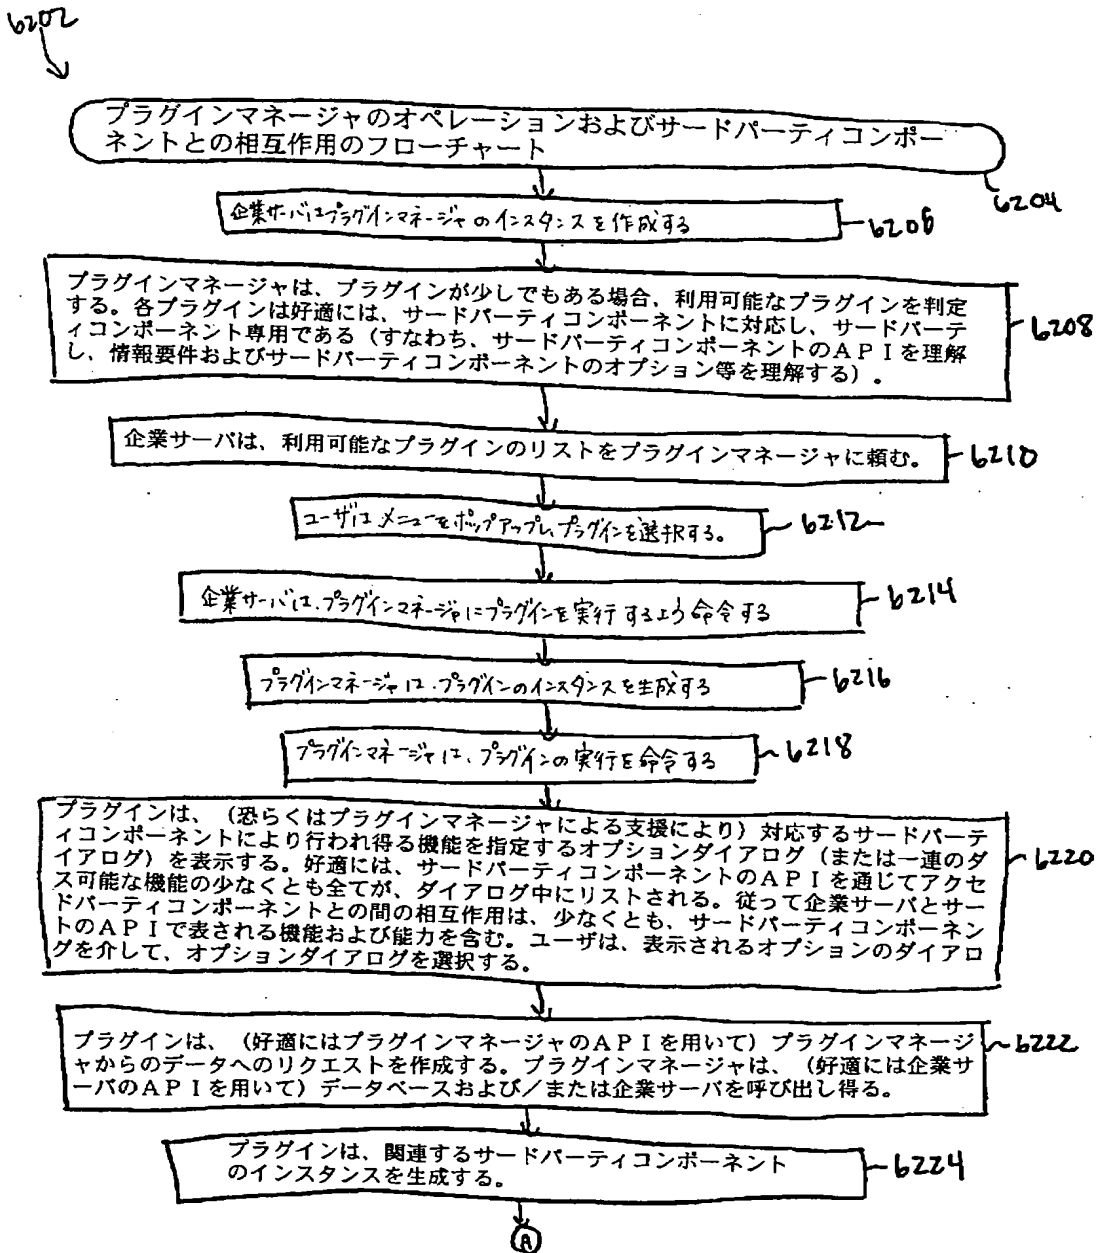 6202
プラグインマネージャのオペレーションおよびサードパーティコンポー
ネントとの相互作用のフローチャート
6204
企業サーバはプラグインマネージャのインスタンスを作成する
6206
プラグインマネージャは、プラグインが少しでもある場合、利用可能なプラグインを判定
する。各プラグインは好適には、サードパーティコンポーネントに対応し、サードパーテ
ィコンポーネント専用である（すなわち、サードパーティコンポーネントのＡＰＩを理解
し、情報要件およびサードパーティコンポーネントのオプション等を理解する）。
6208
企業サーバは、利用可能なプラグインのリストをプラグインマネージャに頼む。
6210
ユーザは、メニューをポップアップし、プラグインを選択する。
6212
企業サーバは、プラグインマネージャにプラグインを実行するよう命令する
6214
プラグインマネージャは、プラグインのインスタンスを生成する
6216
プラグインマネージャは、プラグインの実行を命令する
6218
プラグインは、（恐らくはプラグインマネージャによる支援により）対応するサードパーテ
ィコンポーネントにより行われ得る機能を指定するオプションダイアログ（または一連のダ
イアログ）を表示する。好適には、サードパーティコンポーネントのＡＰＩを通じてアクセ
ス可能な機能の少なくとも全てが、ダイアログ中にリストされる。従って企業サーバとサー
ドパーティコンポーネントとの間の相互作用は、少なくとも、サードパーティコンポーネン
トのＡＰＩで表される機能および能力を含む。ユーザは、表示されるオプションのダイアロ
グを介して、オプションダイアログを選択する。
6220
プラグインは、（好適にはプラグインマネージャのＡＰＩを用いて）プラグインマネージ
ャからのデータへのリクエストを作成する。プラグインマネージャは、（好適には企業サ
ーバのＡＰＩを用いて）データベースおよび／または企業サーバを呼び出し得る。
6222
プラグインは、関連するサードパーティコンポーネント
のインスタンスを生成する。
6224
A